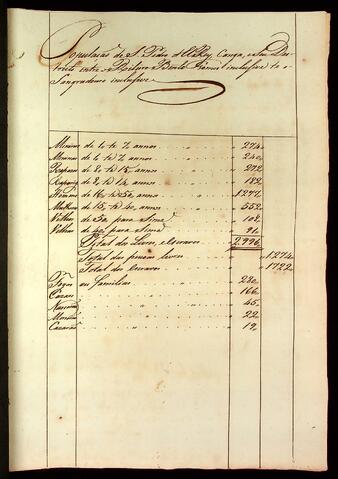 População de S. Pedro d'ElRey, e seu Des-
tricto entre o Bento Gomes inclusive te o
Sangradouro inclusive
Meninos de 1 te 7 annos 274
Meninas de 1 te 7 annos 240
Rapazes de 8 te 15 annos 272
Raparig. de 8 te 14 annos 182
Homens de 16 te 50 annos 1277
Mulheres de 15 te 40 annos 552
Velhos de 50 para sima 108
Velhas de 40 para sima 91
Total dos Livres, e Escravos 2996
Total das pessoas livres 1274
Total dos Escravos 1722
Fogos ou familias 280
Cazam. 166
Nascim. 45
22
19